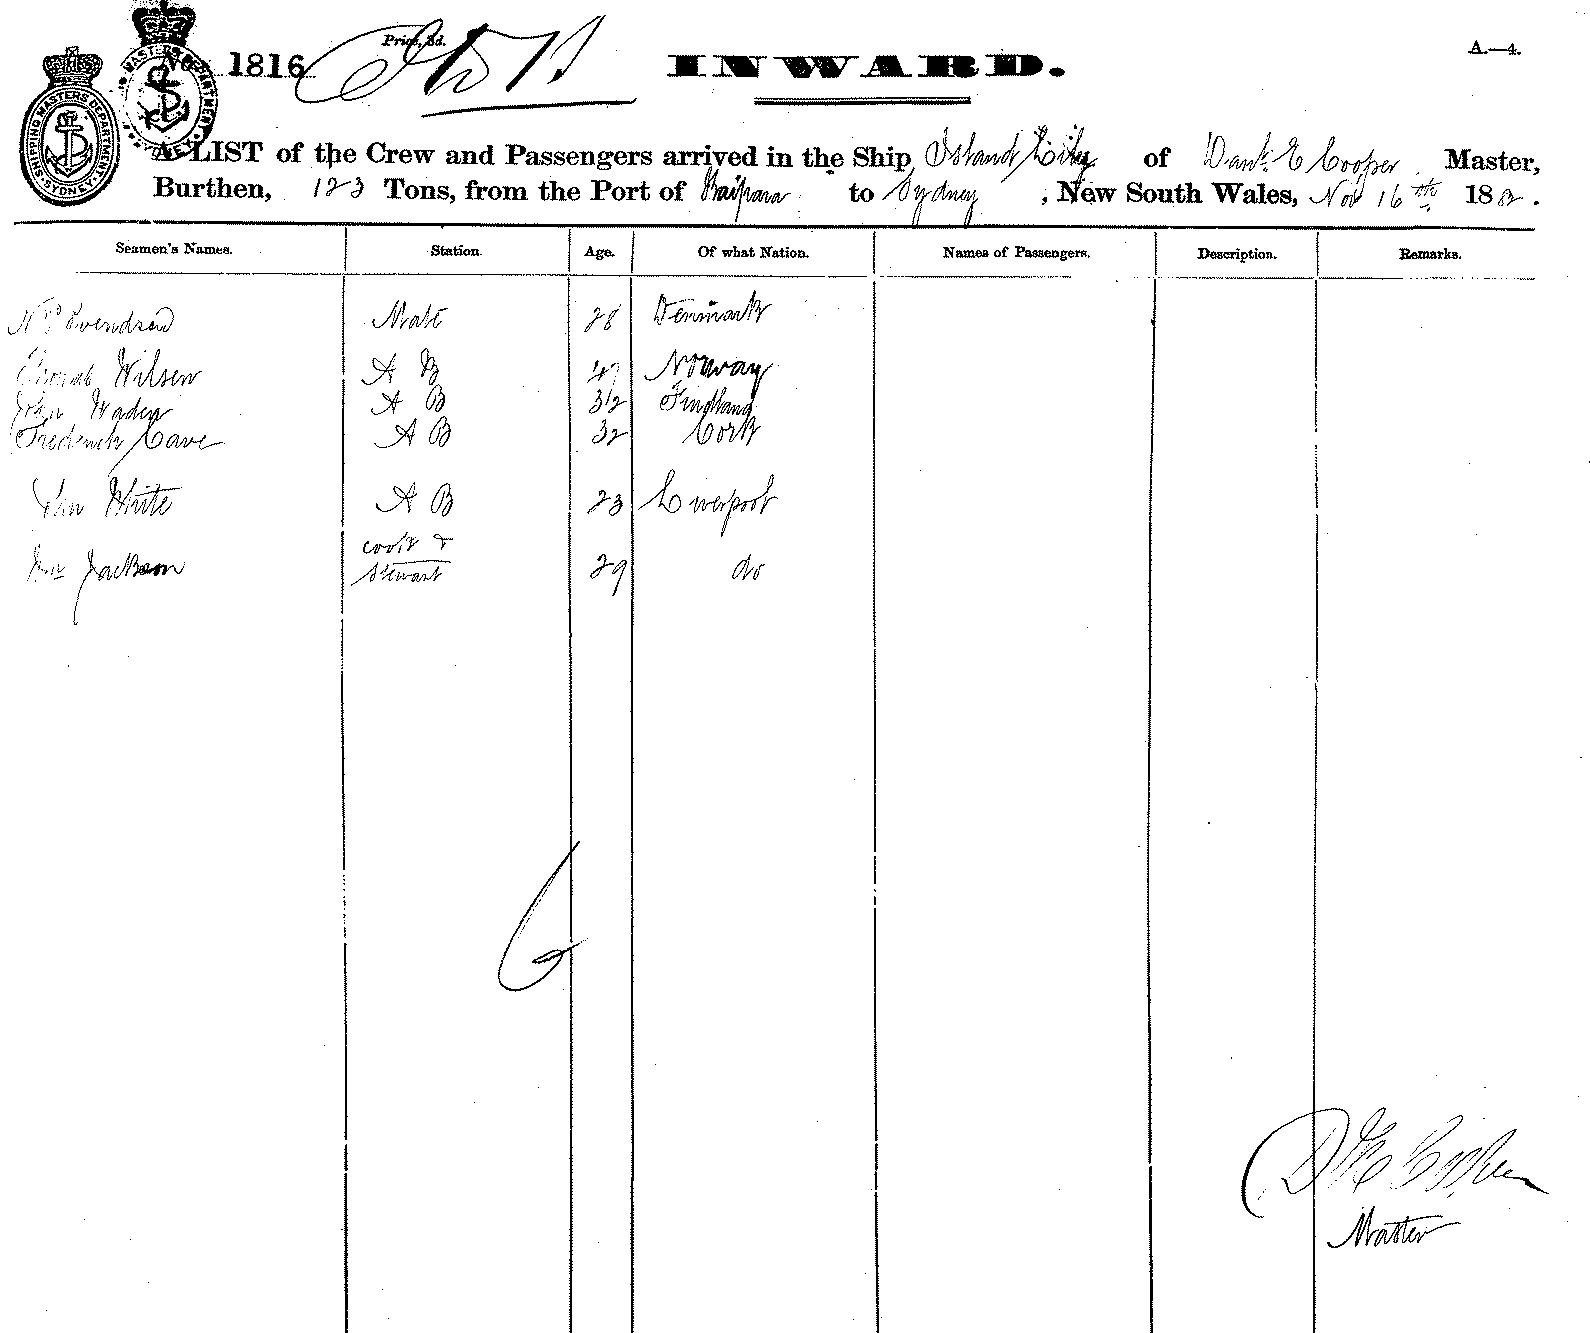 SHIPPING MASTER'S DEPARTMENT SYDNEY
No 1816
Price, 3d.
INWARD.
A.—4.
A LIST of the Crew and Passengers arrived in the Ship Island City of Danl. E Cooper Master,
Burthen, 123 Tons, from the Port of Kaipara to Sydney, New South Wales, Nov 16th 1882.
Seamen's Names. Station. Age. Of what Nation. Names of Passengers. Description. Remarks.
N P Svendsen Mate 28 Denmark
Thomas Wilsen A B 47 Norway
John Waden A B 32 Findland
Frederick Cave A B 32 Cork
White A B 23 Liverpool
Wm Jackson cook &
Stewart 29 do
6
D E Cooper
Master